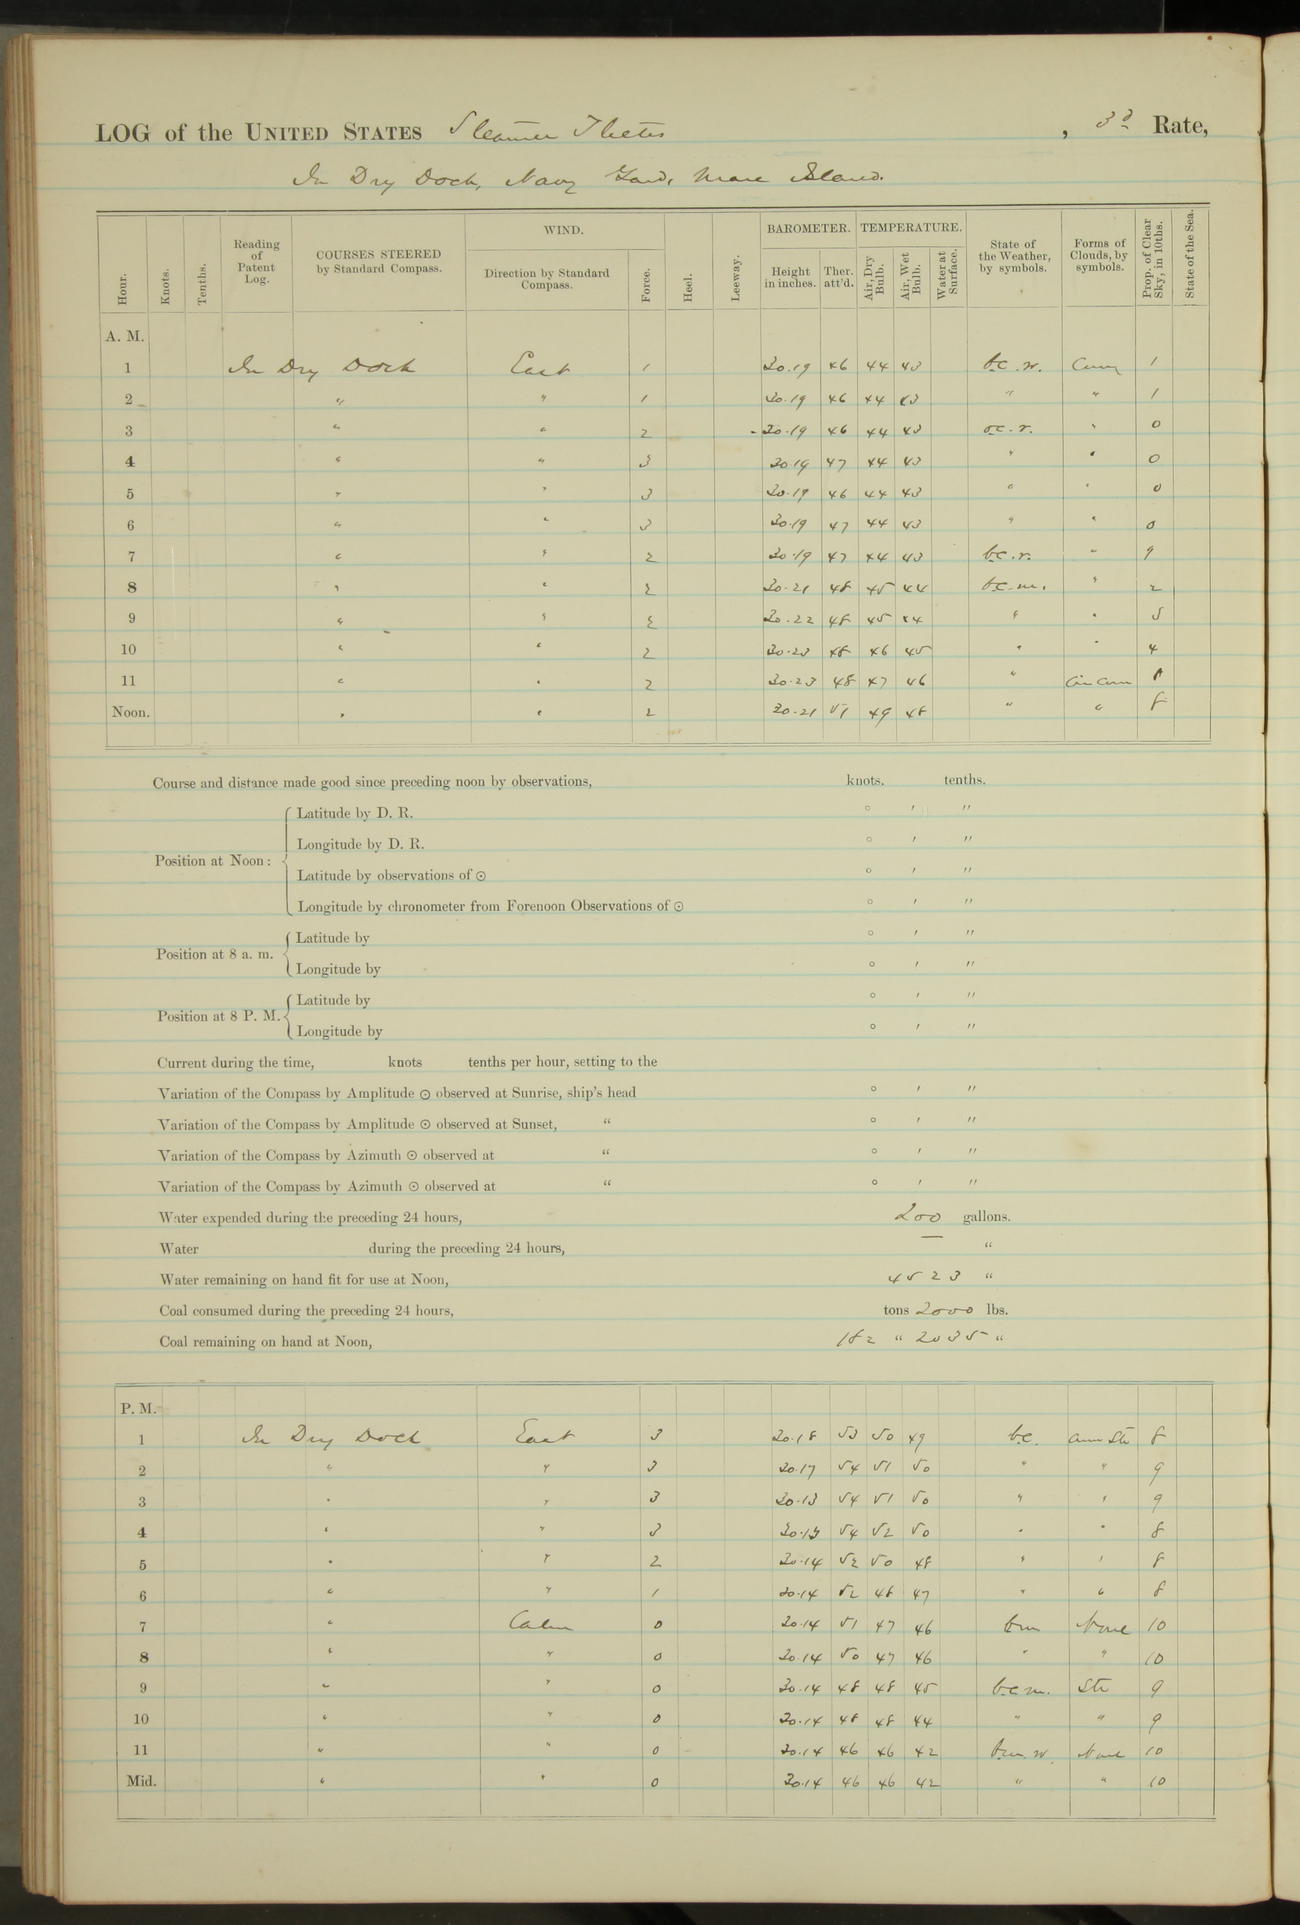 LOG of the UNITED STATES Steamer Thetis, 3d Rate,
In Dry Dock, Navy Yard, Mare Island.
Hour. Knots. Tenths. Reading of Patent Log. COURSES STEERED by Standard Compass. WIND. Direction by Standard Compass. Force. Heel. Leeway. BAROMETER. Height in inches. Ther. att'd. TEMPERATURE. Air, Dry Bulb. Air, Wet Bulb. Water at Surface. State of the Weather, by symbols. Forms of Clouds, by symbols. Prop. of Clear Sky, in 10ths. State of the Sea.
A. M.
1 In Dry Dock East 1 30.19 46 44 43 b.c.w. Cum 1
2 " " 1 30.19 46 44 43 " " 1
3 " " 2 30.19 46 44 43 o.c.r. " 0
4 " " 3 30 19 47 44 43 " " 0
5 " " 3 30.19 46 44 43 " " 0
6 " " 3 30.19 47 44 43 " " 0
7 " " 2 30.19 47 44 43 b.c.r. " 9
8 " " 2 30.21 48 45 44 b.c.m. " 2
9 " " 2 30.22 48 45 44 " " 3
10 " " 2 30.23 48 46 45 " " 4
11 " " 2 30.23 48 47 46 " Cir Cum
Noon. " " 2 30.21 51 49 48 " " 8
Course and distance made good since preceding noon by observations, knots. tenths.
Position at Noon:
Latitude by D. R. ° ′ ″
Longitude by D. R. ° ′ ″
Latitude by observations of ☉ ° ′ ″
Longitude by chronometer from Forenoon Observations of ☉ ° ′ ″
Position at 8 a. m.
Latitude by ° ′ ″
Longitude by ° ′ ″
Position at 8 P. M.
Latitude by ° ′ ″
Longitude by ° ′ ″
Current during the time, knots tenths per hour, setting to the
Variation of the Compass by Amplitude ☉ observed at Sunrise, ship's head ° ′ ″
Variation of the Compass by Amplitude ☉ observed at Sunset, " ° ′ ″
Variation of the Compass by Azimuth ☉ observed at " ° ′ ″
Variation of the Compass by Azimuth ☉ observed at " ° ′ ″
Water expended during the preceding 24 hours, 200 gallons.
Water during the preceding 24 hours, — "
Water remaining on hand fit for use at Noon, 4523 "
Coal consumed during the preceding 24 hours, tons 2000 lbs.
Coal remaining on hand at Noon, 182 " 2035 "
P. M.
1 In Dry Dock East 3 30.18 53 50 49 b.c. Cum Str 8
2 " " 3 30.17 54 51 50 " " 9
3 " " 3 30.13 54 51 50 " " 9
4 " " 3 30.13 54 52 50 " " 8
5 " " 2 30.14 52 50 48 " " 8
6 " " 1 30.14 52 48 47 " " 8
7 " Calm 0 30.14 51 47 46 b.m None 10
8 " " 0 30.14 50 47 46 " " 10
9 " " 0 30.14 48 48 45 b.c.m. Str 9
10 " " 0 30.14 48 48 44 " " 9
11 " " 0 30.14 46 46 42 b.m.w. None 10
Mid. " " 0 30.14 46 46 42 " " 10